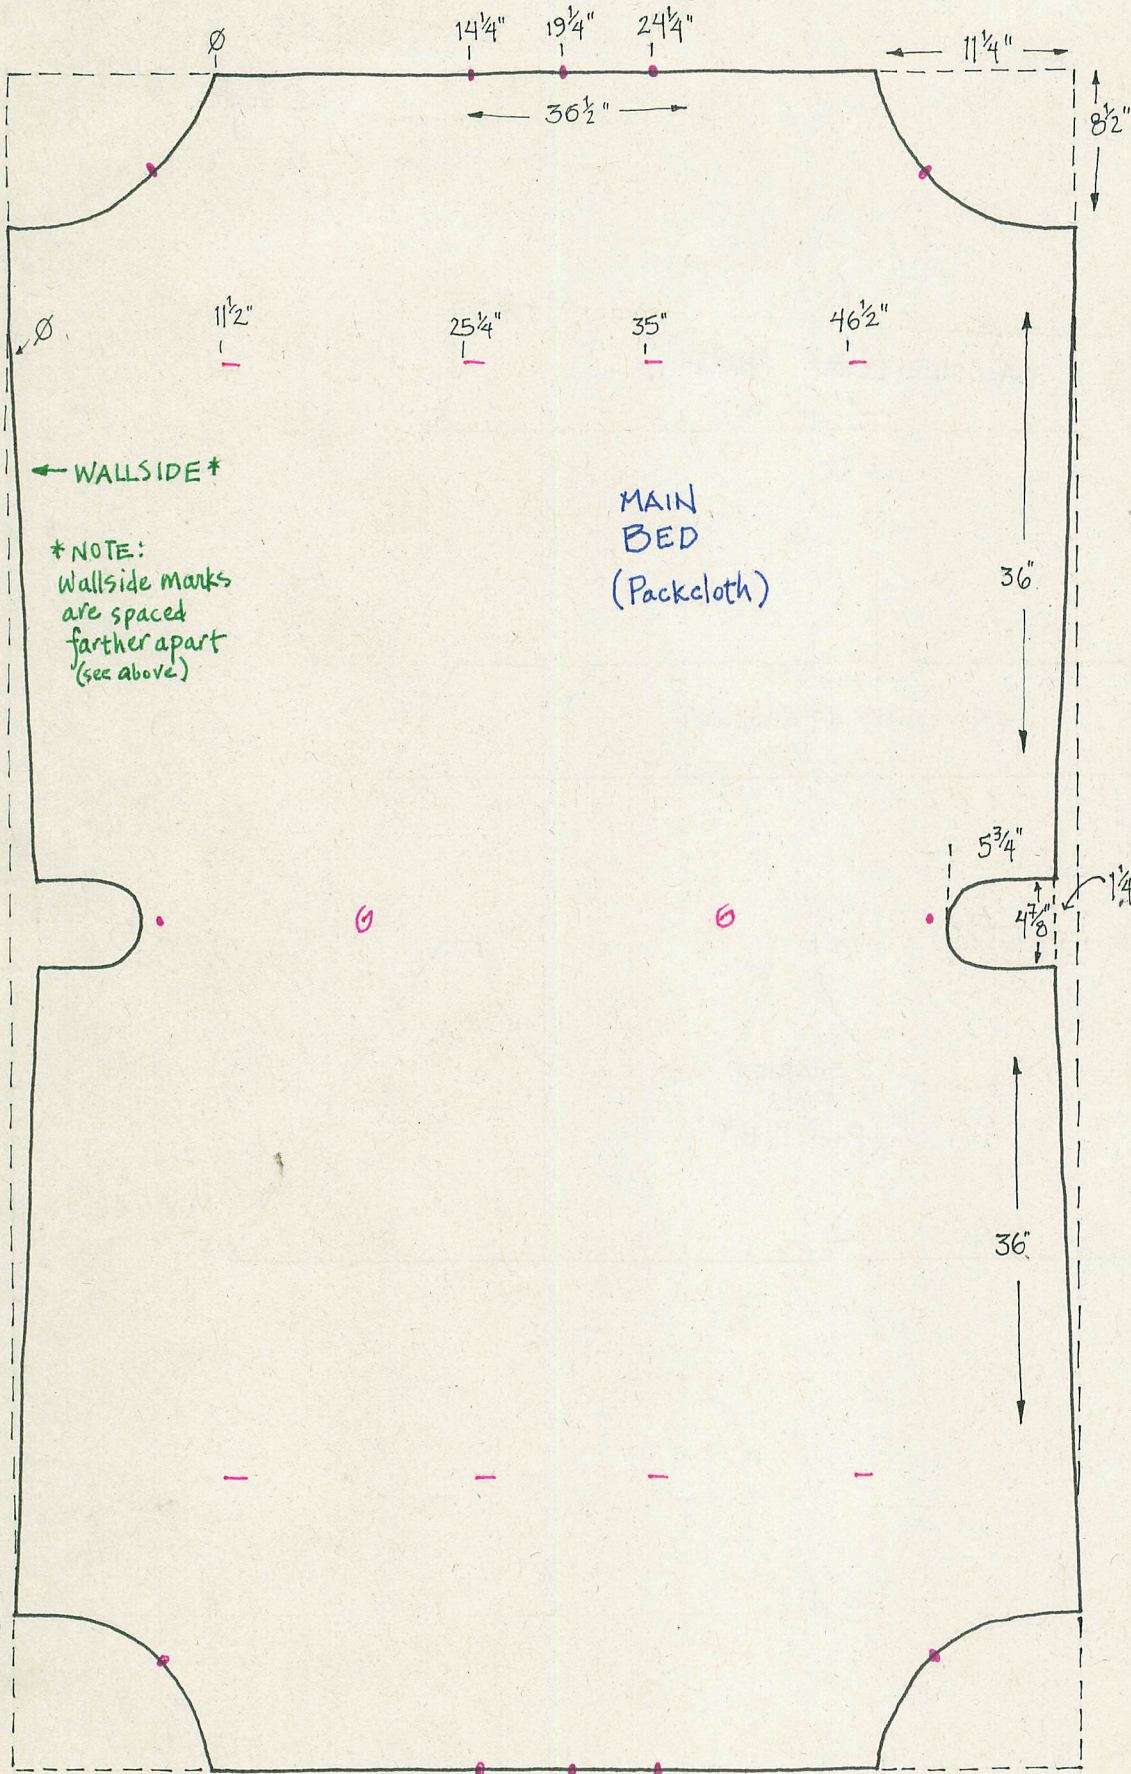 Ø
14 1/4"
19 1/4"
24 1/4"
11 1/4"
36 1/2"
8 1/2"
11 1/2"
25 1/4"
35"
46 1/2"
Ø
← WALLSIDE*
*NOTE:
Wallside marks
are spaced
farther apart
(see above)
MAIN
BED
(Packcloth)
36"
5 3/4"
4 7/8"
1 1/4"
36"